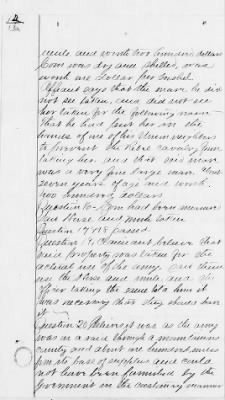 mule and worth two hundred dollars
Corn was dry and shelled, was
worth one dollar per bushel
Affiant says that the mare he did
not see taken, and did not see
her taken for the following reason
that he had sent her in the
hands of one of his Union neighbors
to prevent the Rebel cavalry from
taking her and that said mare
was a very fine large mare about
seven years of age and worth
two hundred dollars
Question 16 Corn had been measured
and Horse and mule taken
Question 17 & 18 passed
Question 19 Claimant believes that
said property was taken for the
actual use of the army and there
in the Horse and mule and the
officer taking the same told him it
was necessary that they should have
it
Question 20 Believes it was as the army
was in a raid through a mountainous
county and about one hundred miles
from its base of supplies and could
not have been furnished by the
Government in the customary manner